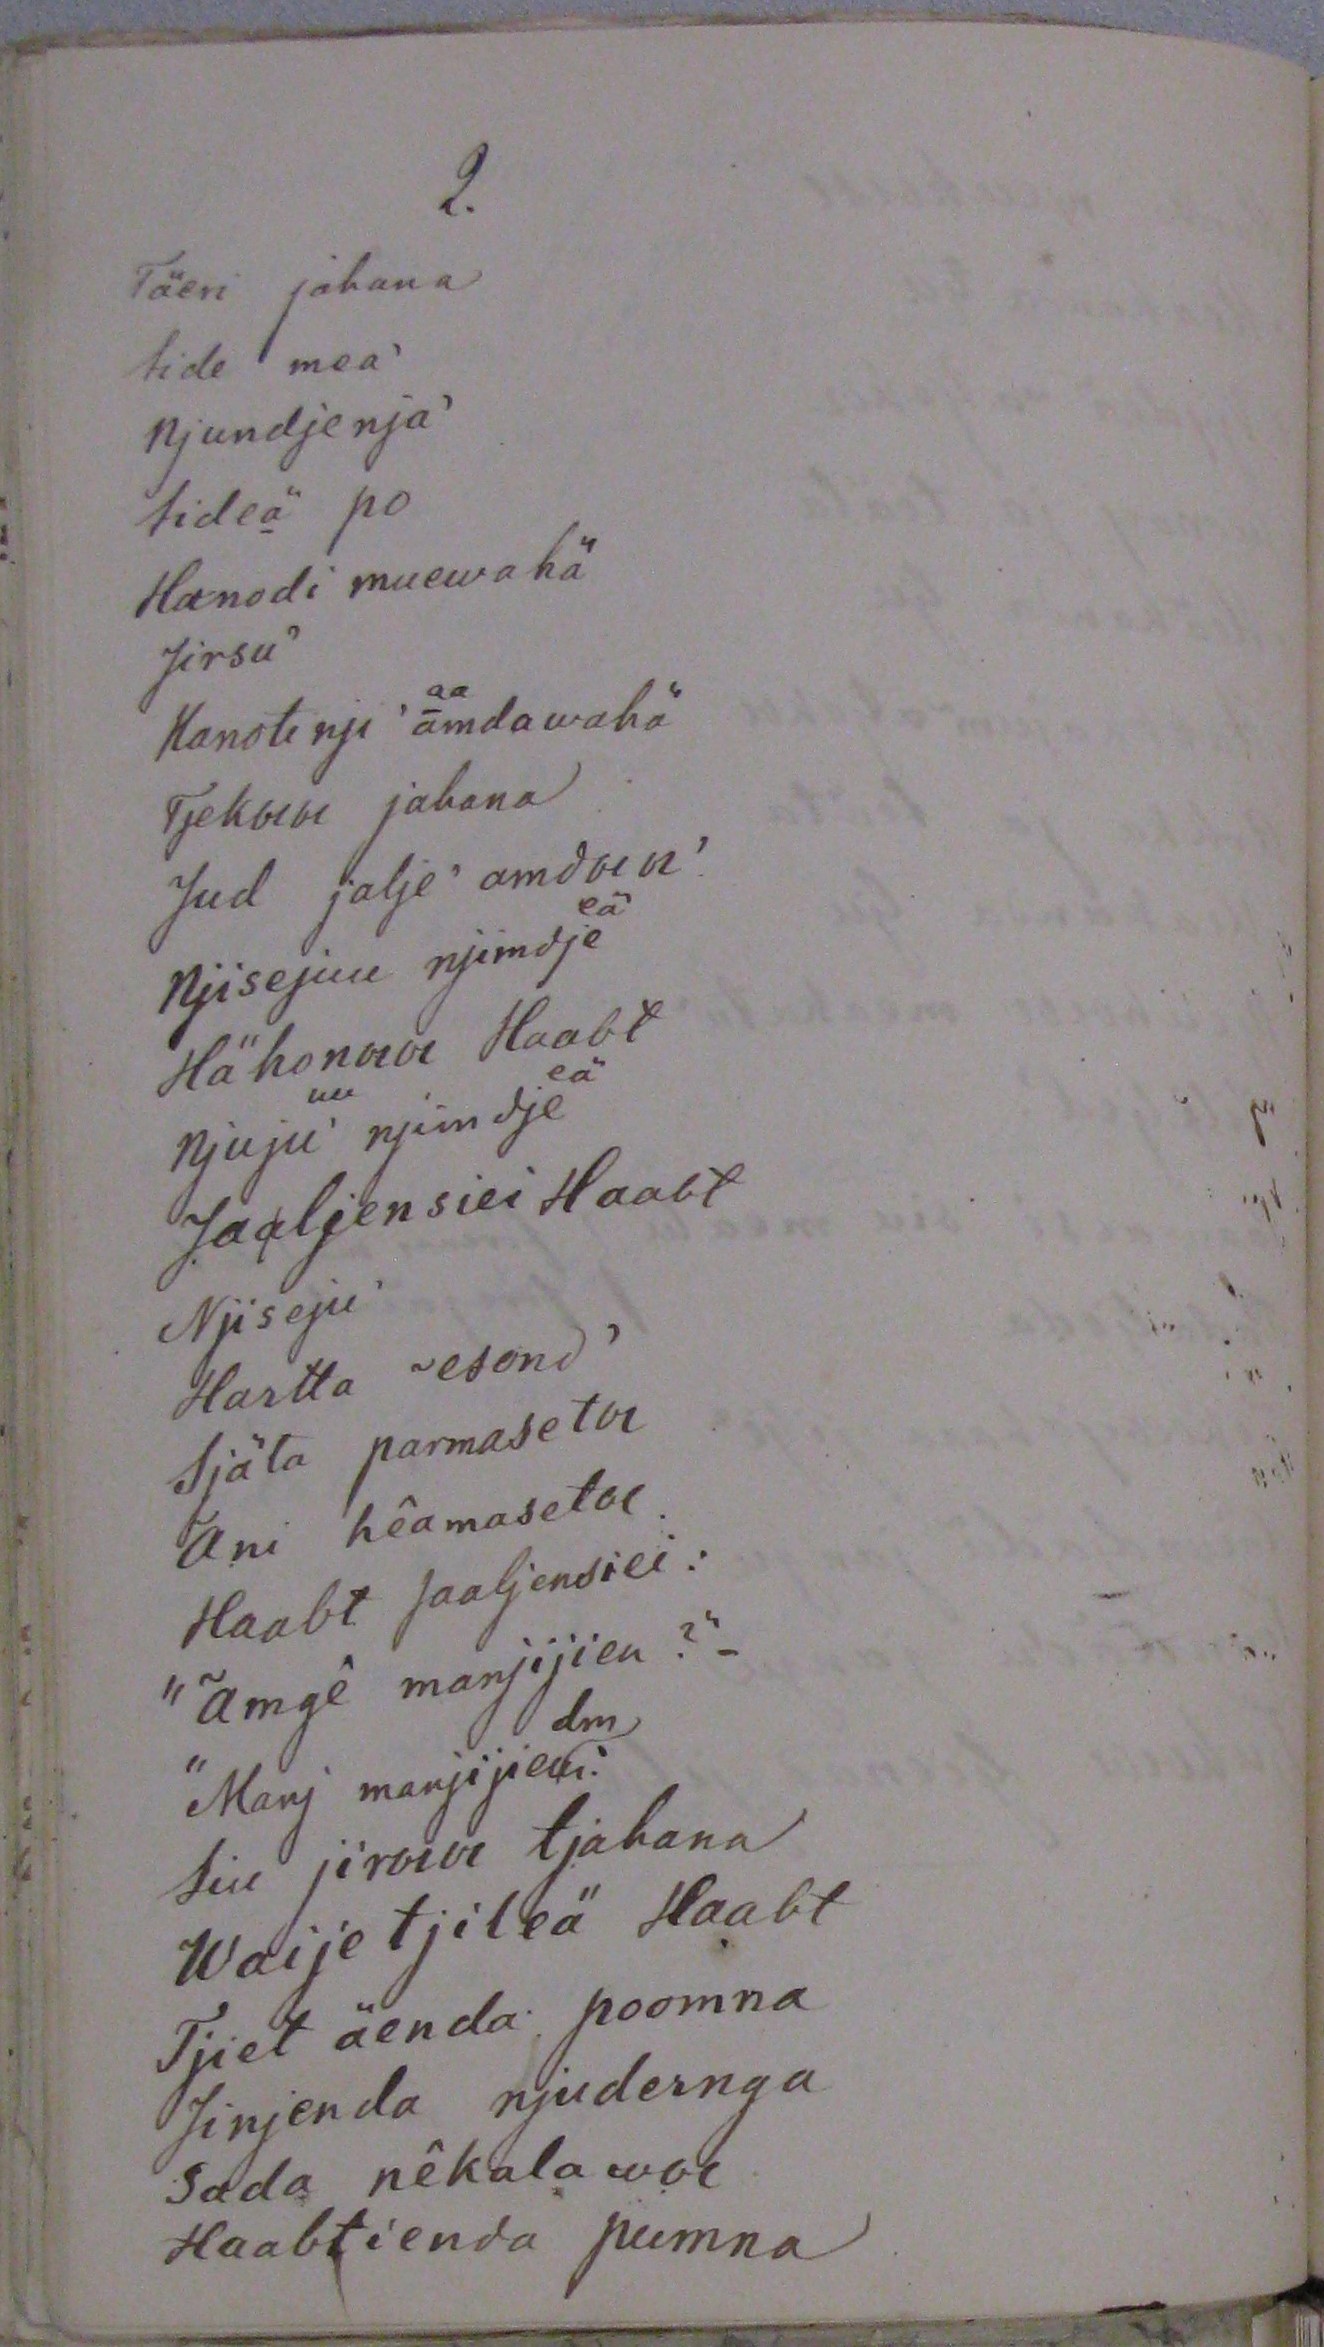 2.
Täeri jahana
side mea'
Njundjenja'
sideä po
Hanodi muewahä
Jirsu'
aa
Kanotenji' ämdawahä
Tjekaωa jahana
Jud jalje' amdaωa'
eä
Njisejuu njimdje
Hähonaωa Haabt
uu eä
Njuju' njimdje
Jaaljensiei Haabt
Njiseju'
Hartta ~esond'
Sjäta parmaseta
Ãni hêamaseta
Haabt Jaaljensiei:
"Ãmgê manjijieu?"-
dm
"Manj manjijieu.
Siu jiraωa tjahana
Waije tjileä Haabt
Tjiet äenda poomna
Jinjenda njudernga
Sada nêkalawa
Haabtienda pumna